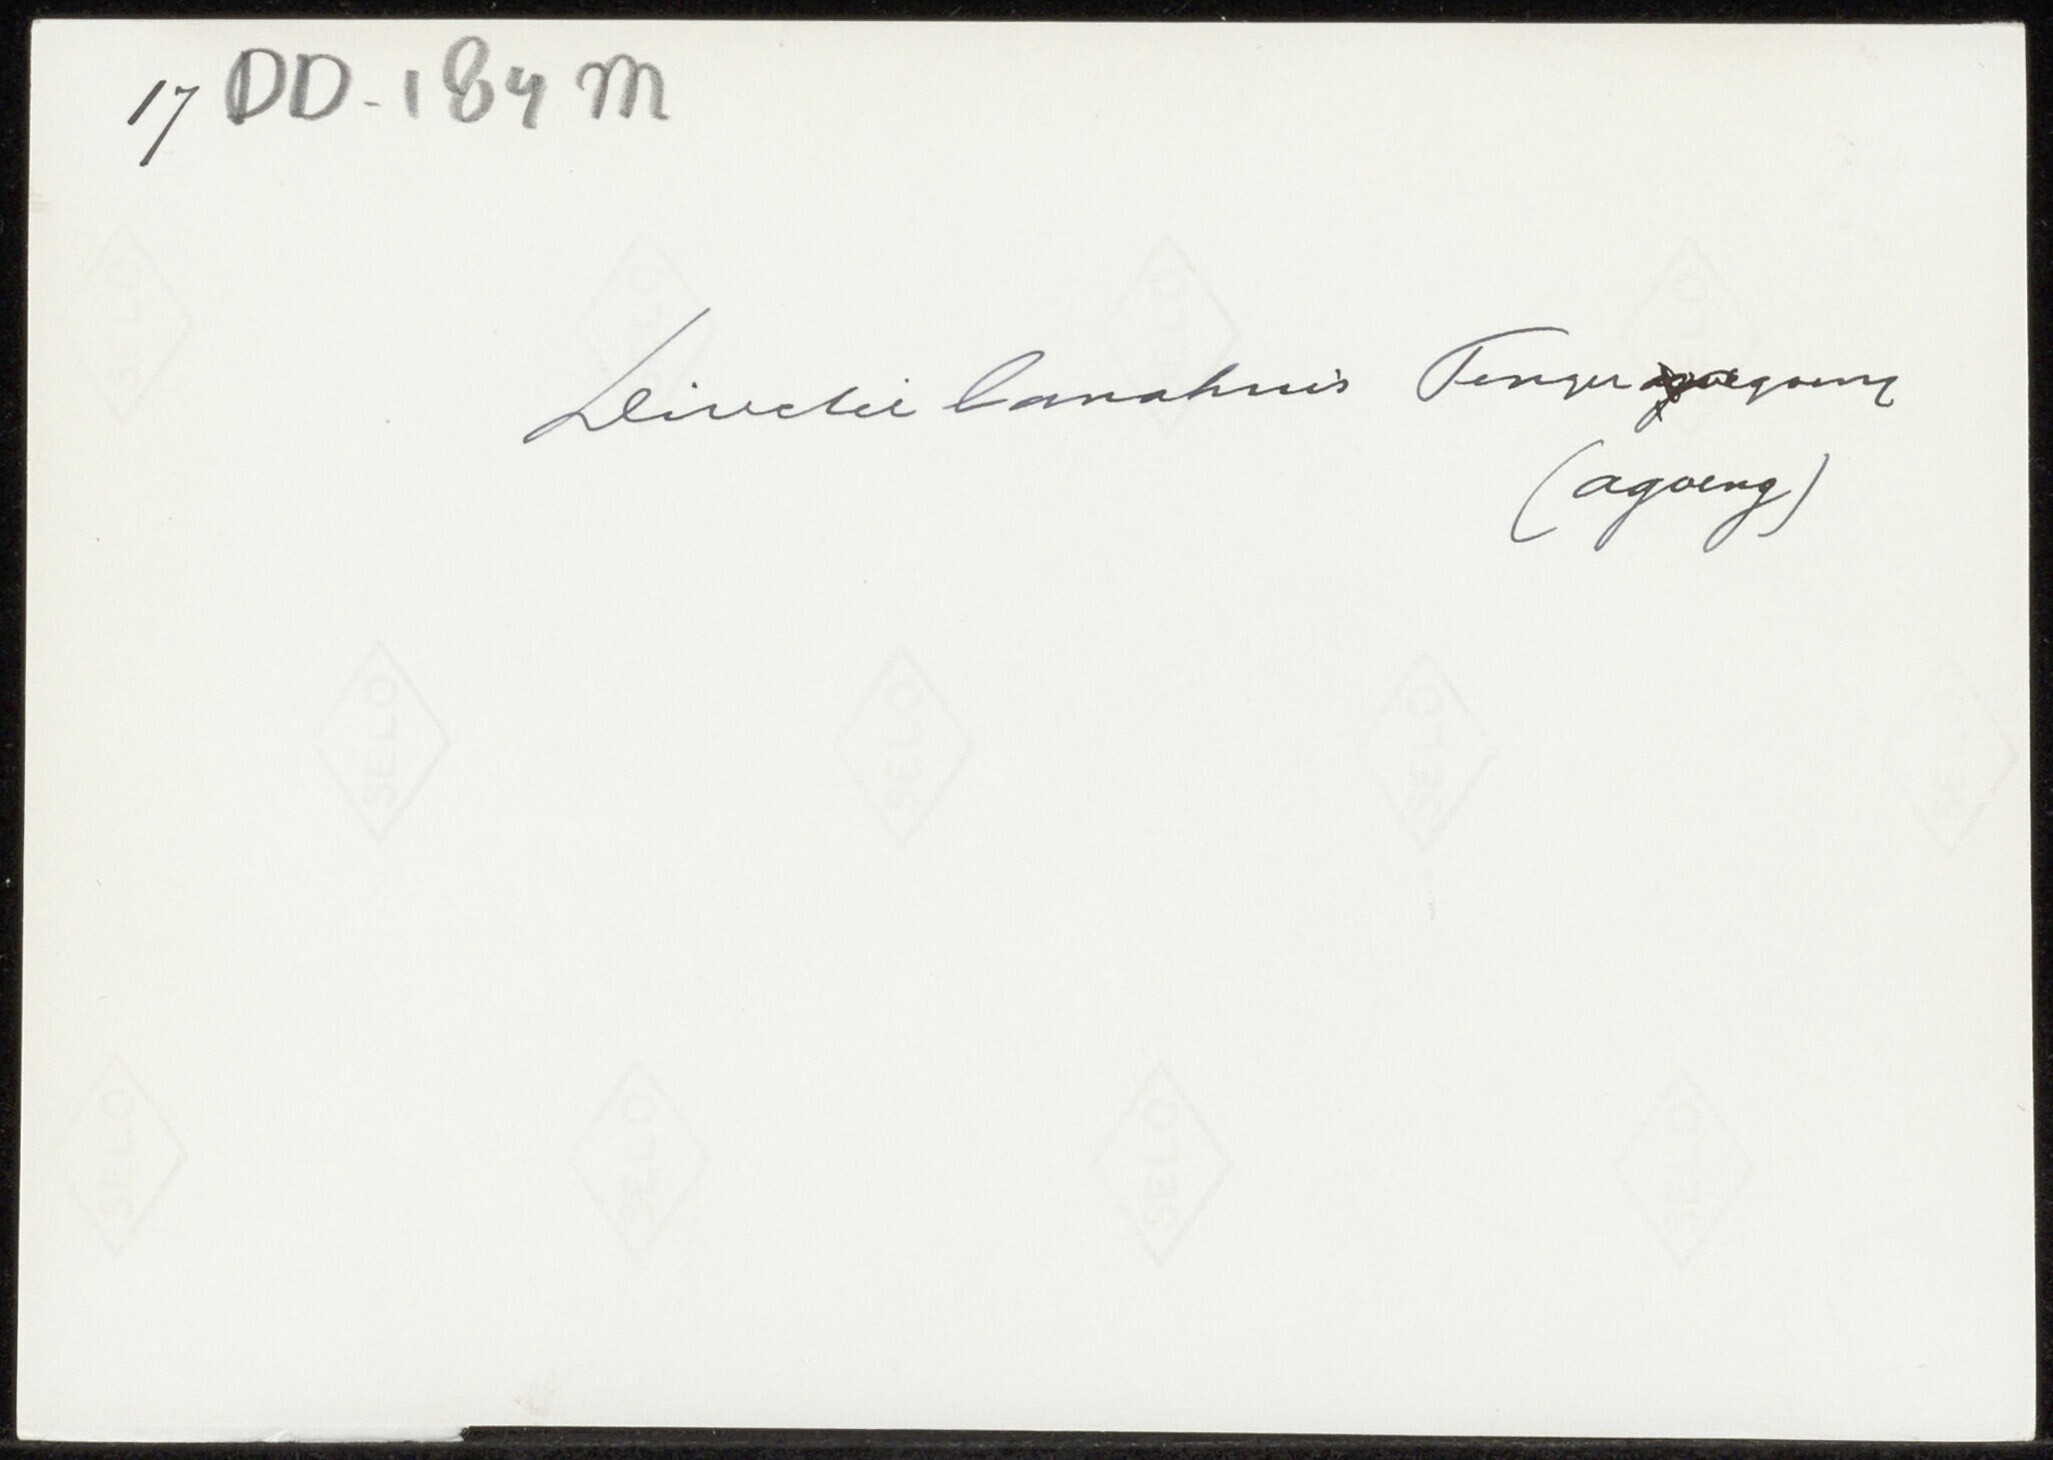 17 DD-184 m
Directie Tenger agoeng
(agoeng)
SELO
SELO
SELO
SELO
SELO
SELO
SELO
SELO
SELO
SELO
SELO
SELO